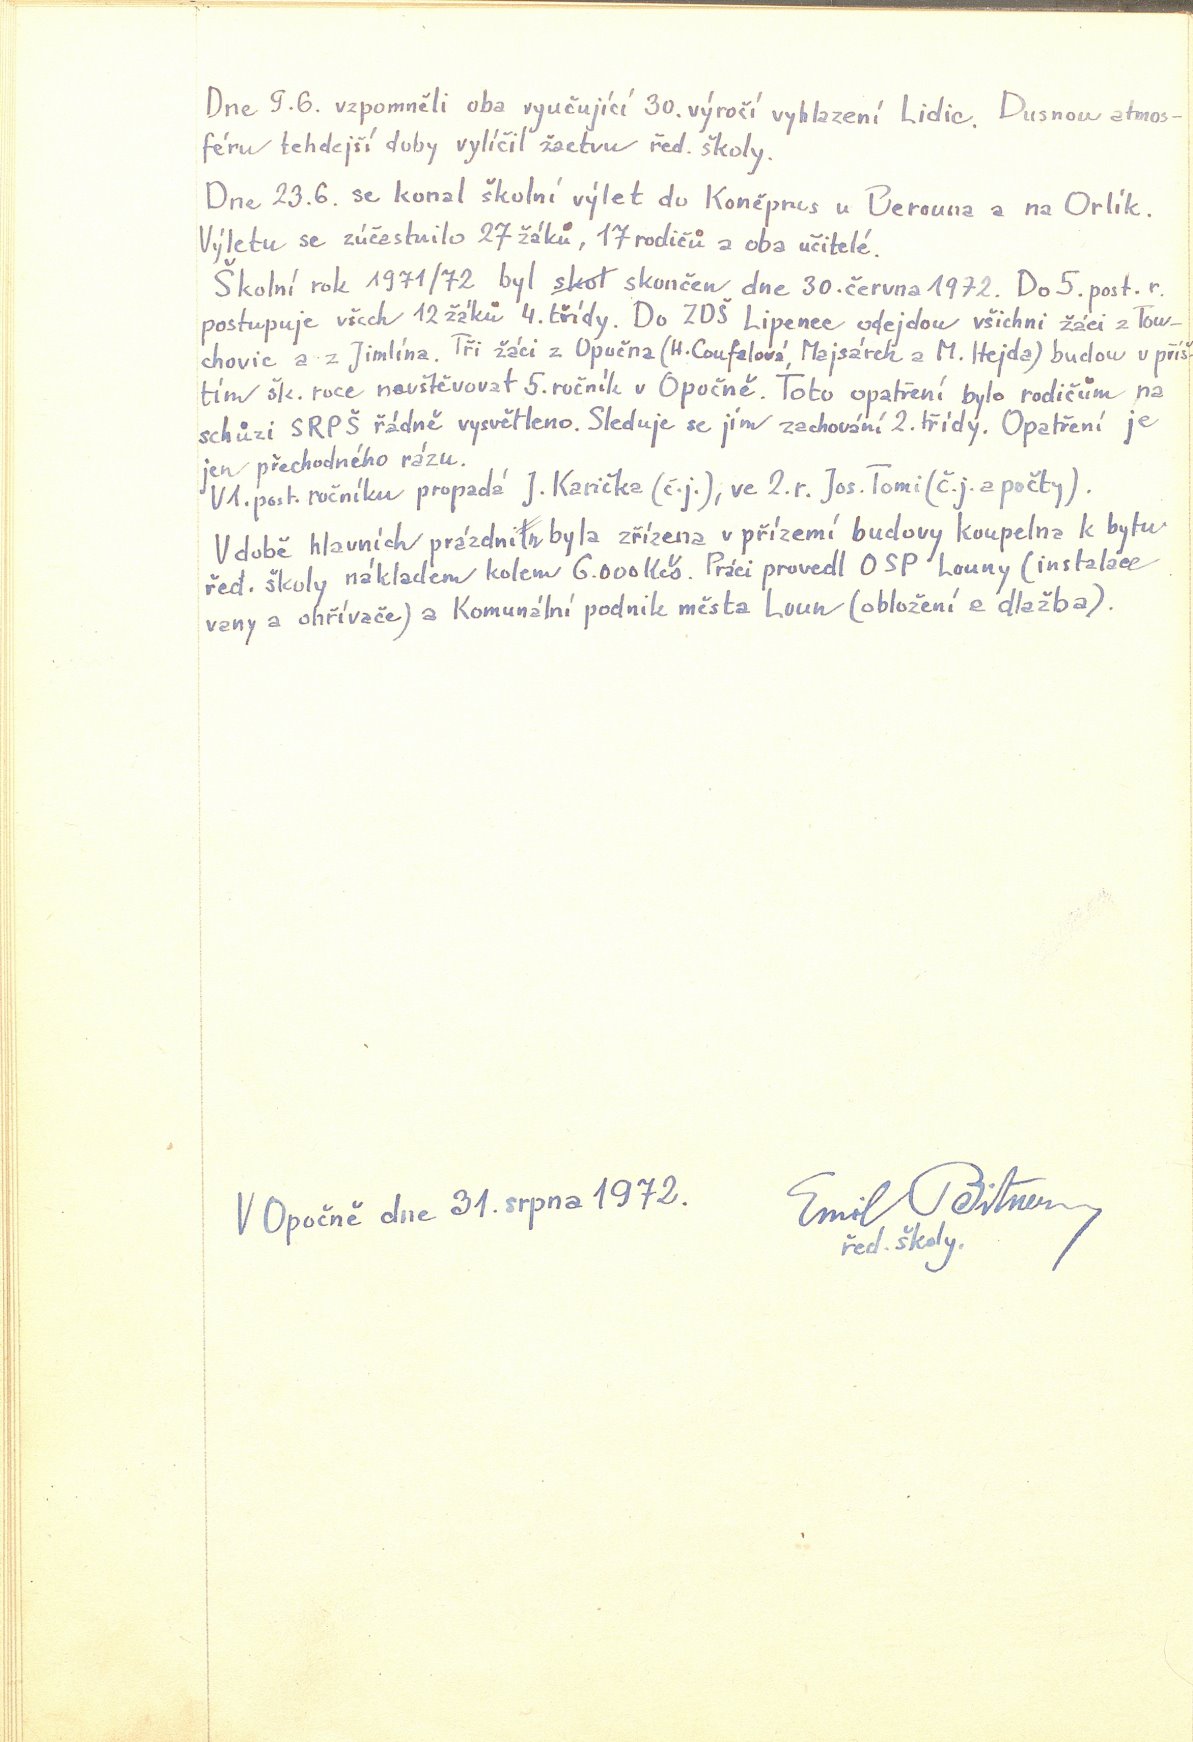 Dne 9.6. vzpomněli oba vyučující 30. výročí vyhlazení Lidic. Dusnou atmos-
féru tehdejší doby vylíčil žactvu řed. školy.
Dne 23.6. se konal školní výlet do Koněprus u Berouna a na Orlík.
Výletu se zúčastnilo 27 žáků, 17 rodičů a oba učitelé.
Školní rok 1971/72 byl skol skončen dne 30. června 1972. Do 5. post. r.
postupuje všech 12 žáků 4. třídy. Do ZDŠ Lipenec odejdou všichni žáci z Tou-
chovic a z Jimlína. Tři žáci z Opočna (H. Coufalová, Majsárek a M. Hejda) budou v příš-
tím šk. roce navštěvovat 5. ročník v Opočně. Toto opatření bylo rodičům na
schůzi SRPŠ řádně vysvětleno. Sleduje se jím zachování 2. třídy. Opatření je
jen přechodného rázu.
V 1. post. ročníku propadá J. Karička (č.j.), ve 2. r. Jos. Tomi (č.j. a počty).
V době hlavních prázdnin byla zřízena v přízemí budovy koupelna k bytu
řed. školy nákladem kolem 6.000 Kčs. Práci provedl OSP Louny (instalace
vany a ohřívače) a Komunální podnik města Loun (obložení a dlažba).
V Opočně dne 31. srpna 1972.
Emil Bitner
řed. školy.